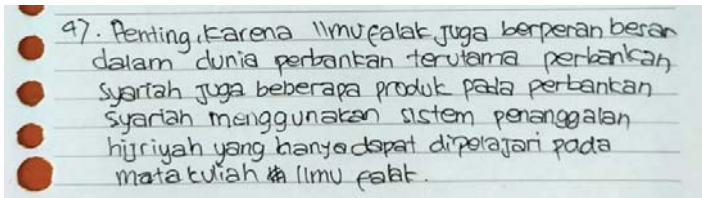 47. Penting, karena Ilmu falak juga berperan besar
dalam dunia perbankan terutama perbankan
syariah juga beberapa produk pada perbankan
syariah menggunakan sistem penanggalan
hijriyah yang hanya dapat dipelajari pada
mata kuliah Ilmu falak.